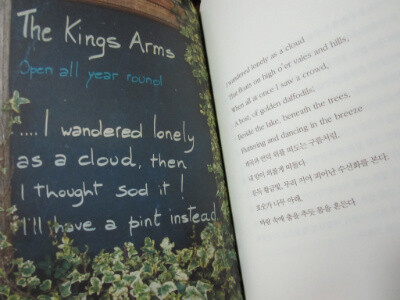 The Kings Arms
Open all year round
....I wandered lonely
as a cloud, then
I thought sod it!
I'll have a pint instead
I wandered lonely as a cloud
That floats on high o'er vales and hills,
When all at once I saw a crowd,
A host, of golden daffodils;
Beside the lake, beneath the trees,
Fluttering and dancing in the breeze
계곡과 언덕 위를 떠도는 구름처럼,
외롭게
문득 황금빛, 무리 지어 피어난 수선화를 본다.
호숫가 나무 아래,
바람 속에 춤을 추듯 몸을 흔든다.